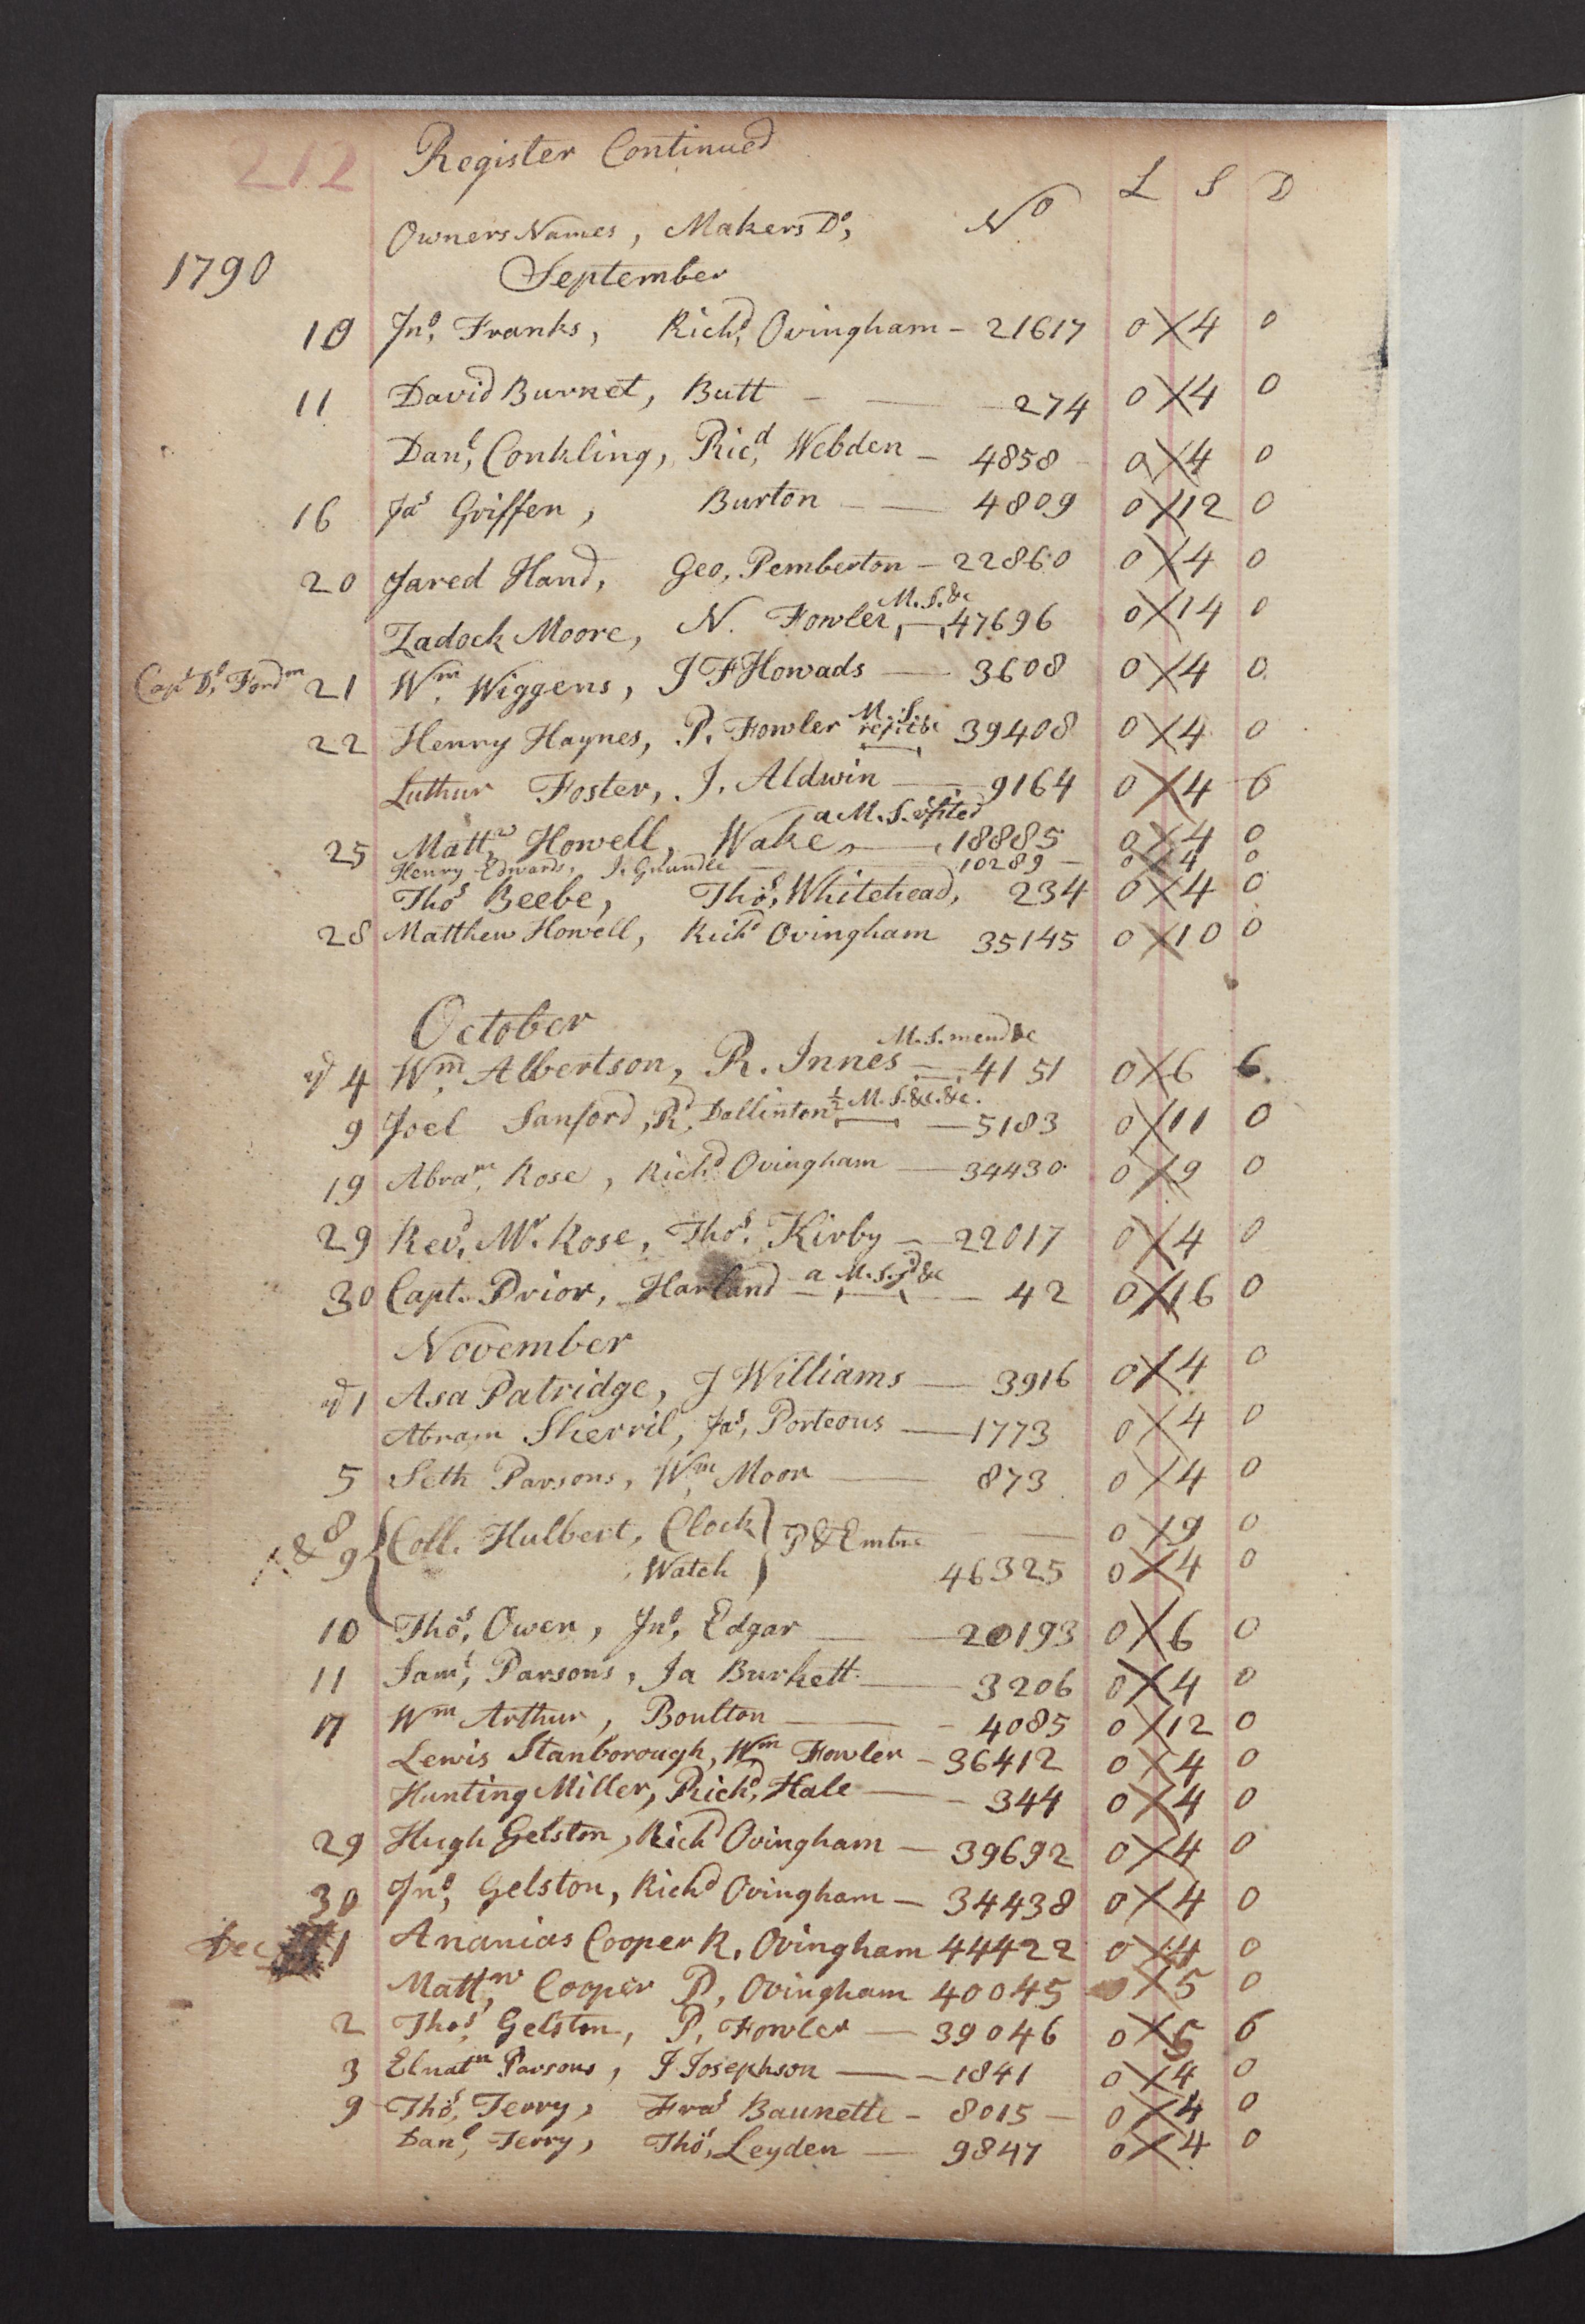 212 Register Continued
L S D
Owners Names, Makers Do, No
1790 September
10 Jno, Franks, Richd, Ovingham - 21617 0 4 0
11 David Burnet, Butt - — 274 0 4 0
Danl, Conkling, Ricd, Webden - 4858 - 0 4 0
16 Jas Griffen, Burton - — 4809 0 12 0
20 Jared Hand, Geo, Pemberton - 22860 0 4 0
M. S. &c
Zadock Moore, N. Fowler, - 47696 0 14 0
Capt D, Fordm 21 Wm, Wiggens, J F Howads — 3608 0 4 0
M. S.
22 Henry Haynes, P. Fowler 39408 0 4 0
Luthur Foster, J. Aldwin — 9164 0 4 6
a M. S.
25 Mattw, Howell, Wake, — 18885 0 4 0
Henry Edwards, J. Grundle — 10289 - 0 4 0
Thos Beebe, Thos, Whitehead, 234 0 4 0
28 Matthew Howell, Richd Ovingham 35145 0 10 0
October
M. S. mend &c
4 Wm, Albertson, R. Innes - 4151 0 6 6
½ M. S. &c. &c.
9 Joel Sanford, R, Dallinton — 5183 0 11 0
19 Abram, Rose, Richd Ovingham — 34430 0 9 0
29 Revd, Mr. Rose, Thos. Kirby - 22017 0 4 0
30 Capt. Prior, Harland - a M. S. &c — 42 0 16 0
November
1 Asa Patridge, J Williams — 3916 0 4 0
Abram Sherril, Jas, Porteous — 1773 0 4 0
5 Seth Parsons, Wm, Moor — 873 0 4 0
& 8 Coll. Hulbert, Clock P & Embre — 0 9 0
9 Watch 46325 0 4 0
10 Thos, Owen, Jno, Edgar — 20193 0 6 0
11 Saml, Parsons, Ja Burkett — 3206 0 4 0
17 Wm Arthur, Boulton — - 4085 0 12 0
Lewis Stanborough, Wm Fowler - 36412 0 4 0
Hunting Miller, Richd, Hale — - 344 0 4 0
29 Hugh Gelston, Richd Ovingham - 39692 0 4 0
30 Jno, Gelston, Richd Ovingham - 34438 0 4 0
Dec 1 Ananias Cooper R, Ovingham 44422 0 4 0
Mattw, Cooper P, Ovingham 40045 0 5 0
2 Thos, Gelston, P, Fowler — 39046 0 5 6
3 Elnatn Parsons, J Josephson — 1841 0 4 0
9 Thos, Terry, Fras Baunette - 8015 - 0 4 0
Danl, Terry, Thos, Leyden — 9847 0 4 0